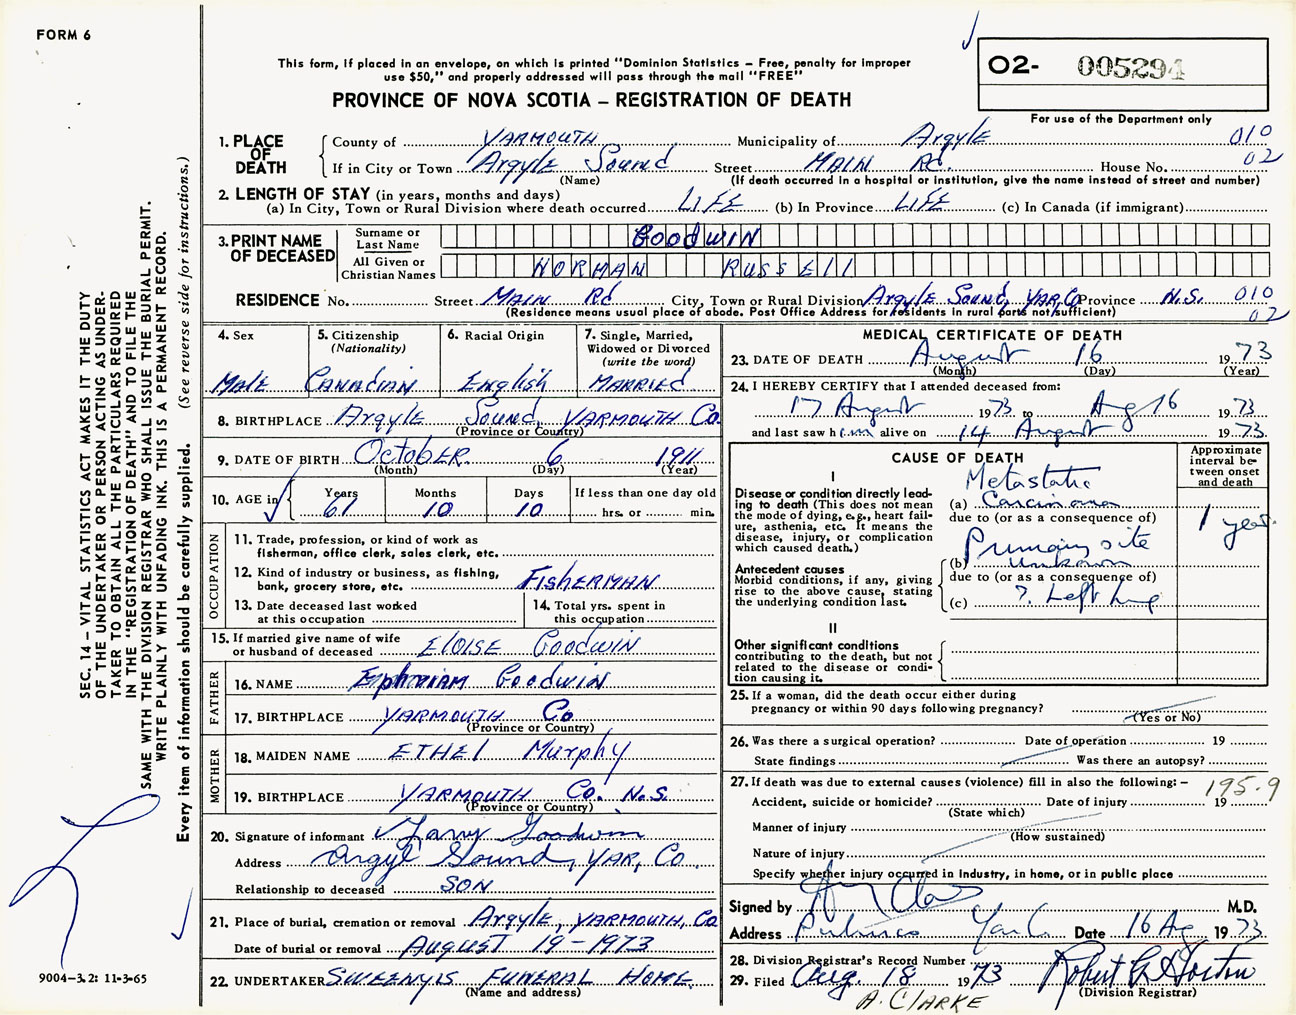 FORM 6
This form, if placed in an envelope, on which is printed "Dominion Statistics – Free, penalty for improper
use $50," and properly addressed will pass through the mail "FREE"
PROVINCE OF NOVA SCOTIA – REGISTRATION OF DEATH
02- 005294
For use of the Department only
1. PLACE OF DEATH
County of YARMOUTH Municipality of Argyle 010
If in City or Town Argyle Sound Street MAIN Rd House No. 02
(Name) (If death occurred in a hospital or institution, give the name instead of street and number)
2. LENGTH OF STAY (in years, months and days)
(a) In City, Town or Rural Division where death occurred LIFE (b) In Province LIFE (c) In Canada (if immigrant)
3. PRINT NAME OF DECEASED
Surname or Last Name GOODWIN
All Given or Christian Names NORMAN RUSSEll
RESIDENCE No. Street MAIN Rd City, Town or Rural Division Argyle Sound, YAR, Co Province N.S. 010
(Residence means usual place of abode. Post Office Address for residents in rural parts not sufficient) 02
4. Sex MALE
5. Citizenship (Nationality) CANADIAN
6. Racial Origin English
7. Single, Married, Widowed or Divorced (write the word) MARRIED
8. BIRTHPLACE Argyle Sound, YARMOUTH Co.
(Province or Country)
9. DATE OF BIRTH OctobER 6 1911
(Month) (Day) (Year)
10. AGE in Years 61 Months 10 Days 10 If less than one day old hrs. or min.
OCCUPATION
11. Trade, profession, or kind of work as
fisherman, office clerk, sales clerk, etc.
12. Kind of industry or business, as fishing,
bank, grocery store, etc. FISHERMAN
13. Date deceased last worked
at this occupation
14. Total yrs. spent in
this occupation
15. If married give name of wife
or husband of deceased ELOISE GOODWIN
FATHER
16. NAME Ephriam Goodwin
17. BIRTHPLACE YARMOUTH Co
(Province or Country)
MOTHER
18. MAIDEN NAME ETHEl Murphy
19. BIRTHPLACE YARMOUTH Co. N.S.
(Province or Country)
20. Signature of informant Goodwin
Address Argyl Sound, YAR, Co.
Relationship to deceased SON
21. Place of burial, cremation or removal Argyle, YARMOUTH, Co
Date of burial or removal AUGUST 19 - 1973
22. UNDERTAKER SWEENY'S FUNERAL HOME
(Name and address)
MEDICAL CERTIFICATE OF DEATH
23. DATE OF DEATH August 16 1973
(Month) (Day) (Year)
24. I HEREBY CERTIFY that I attended deceased from:
17 August 1973 to Aug 16 1973
and last saw him alive on 14 August 1973.
CAUSE OF DEATH
Approximate interval between onset and death
I
Disease or condition directly leading to death (This does not mean the mode of dying, e.g., heart failure, asthenia, etc. It means the disease, injury, or complication which caused death.)
Metastatic
(a) Carcinoma
1 year.
due to (or as a consequence of)
Antecedent causes
Morbid conditions, if any, giving rise to the above cause, stating the underlying condition last.
Primary site
(b) unknown
due to (or as a consequence of)
(c) ?. Left lung
II
Other significant conditions
contributing to the death, but not related to the disease or condition causing it.
25. If a woman, did the death occur either during
pregnancy or within 90 days following pregnancy?
(Yes or No)
26. Was there a surgical operation? Date of operation 19
State findings Was there an autopsy?
27. If death was due to external causes (violence) fill in also the following: – 195-9
Accident, suicide or homicide? Date of injury 19
(State which)
Manner of injury
(How sustained)
Nature of injury
Specify whether injury occurred in industry, in home, or in public place
Signed by M.D.
Address Pubnico Yar Co. Date 16 Aug 1973.
28. Division Registrar's Record Number
29. Filed Aug. 18 1973 Robert
(Division Registrar)
A. CLARKE
SEC. 14 – VITAL STATISTICS ACT MAKES IT THE DUTY
OF THE UNDERTAKER OR PERSON ACTING AS UNDER-
TAKER TO OBTAIN ALL THE PARTICULARS REQUIRED
IN THE "REGISTRATION OF DEATH" AND TO FILE THE
SAME WITH THE DIVISION REGISTRAR WHO SHALL ISSUE THE BURIAL PERMIT.
WRITE PLAINLY WITH UNFADING INK. THIS IS A PERMANENT RECORD.
Every item of information should be carefully supplied. (See reverse side for instructions.)
9004-3.2: 11-3-65